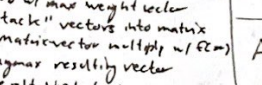 max weight vector
tack" vectors into matrix
matrix vector multiply w/
gmax resulting vector
A